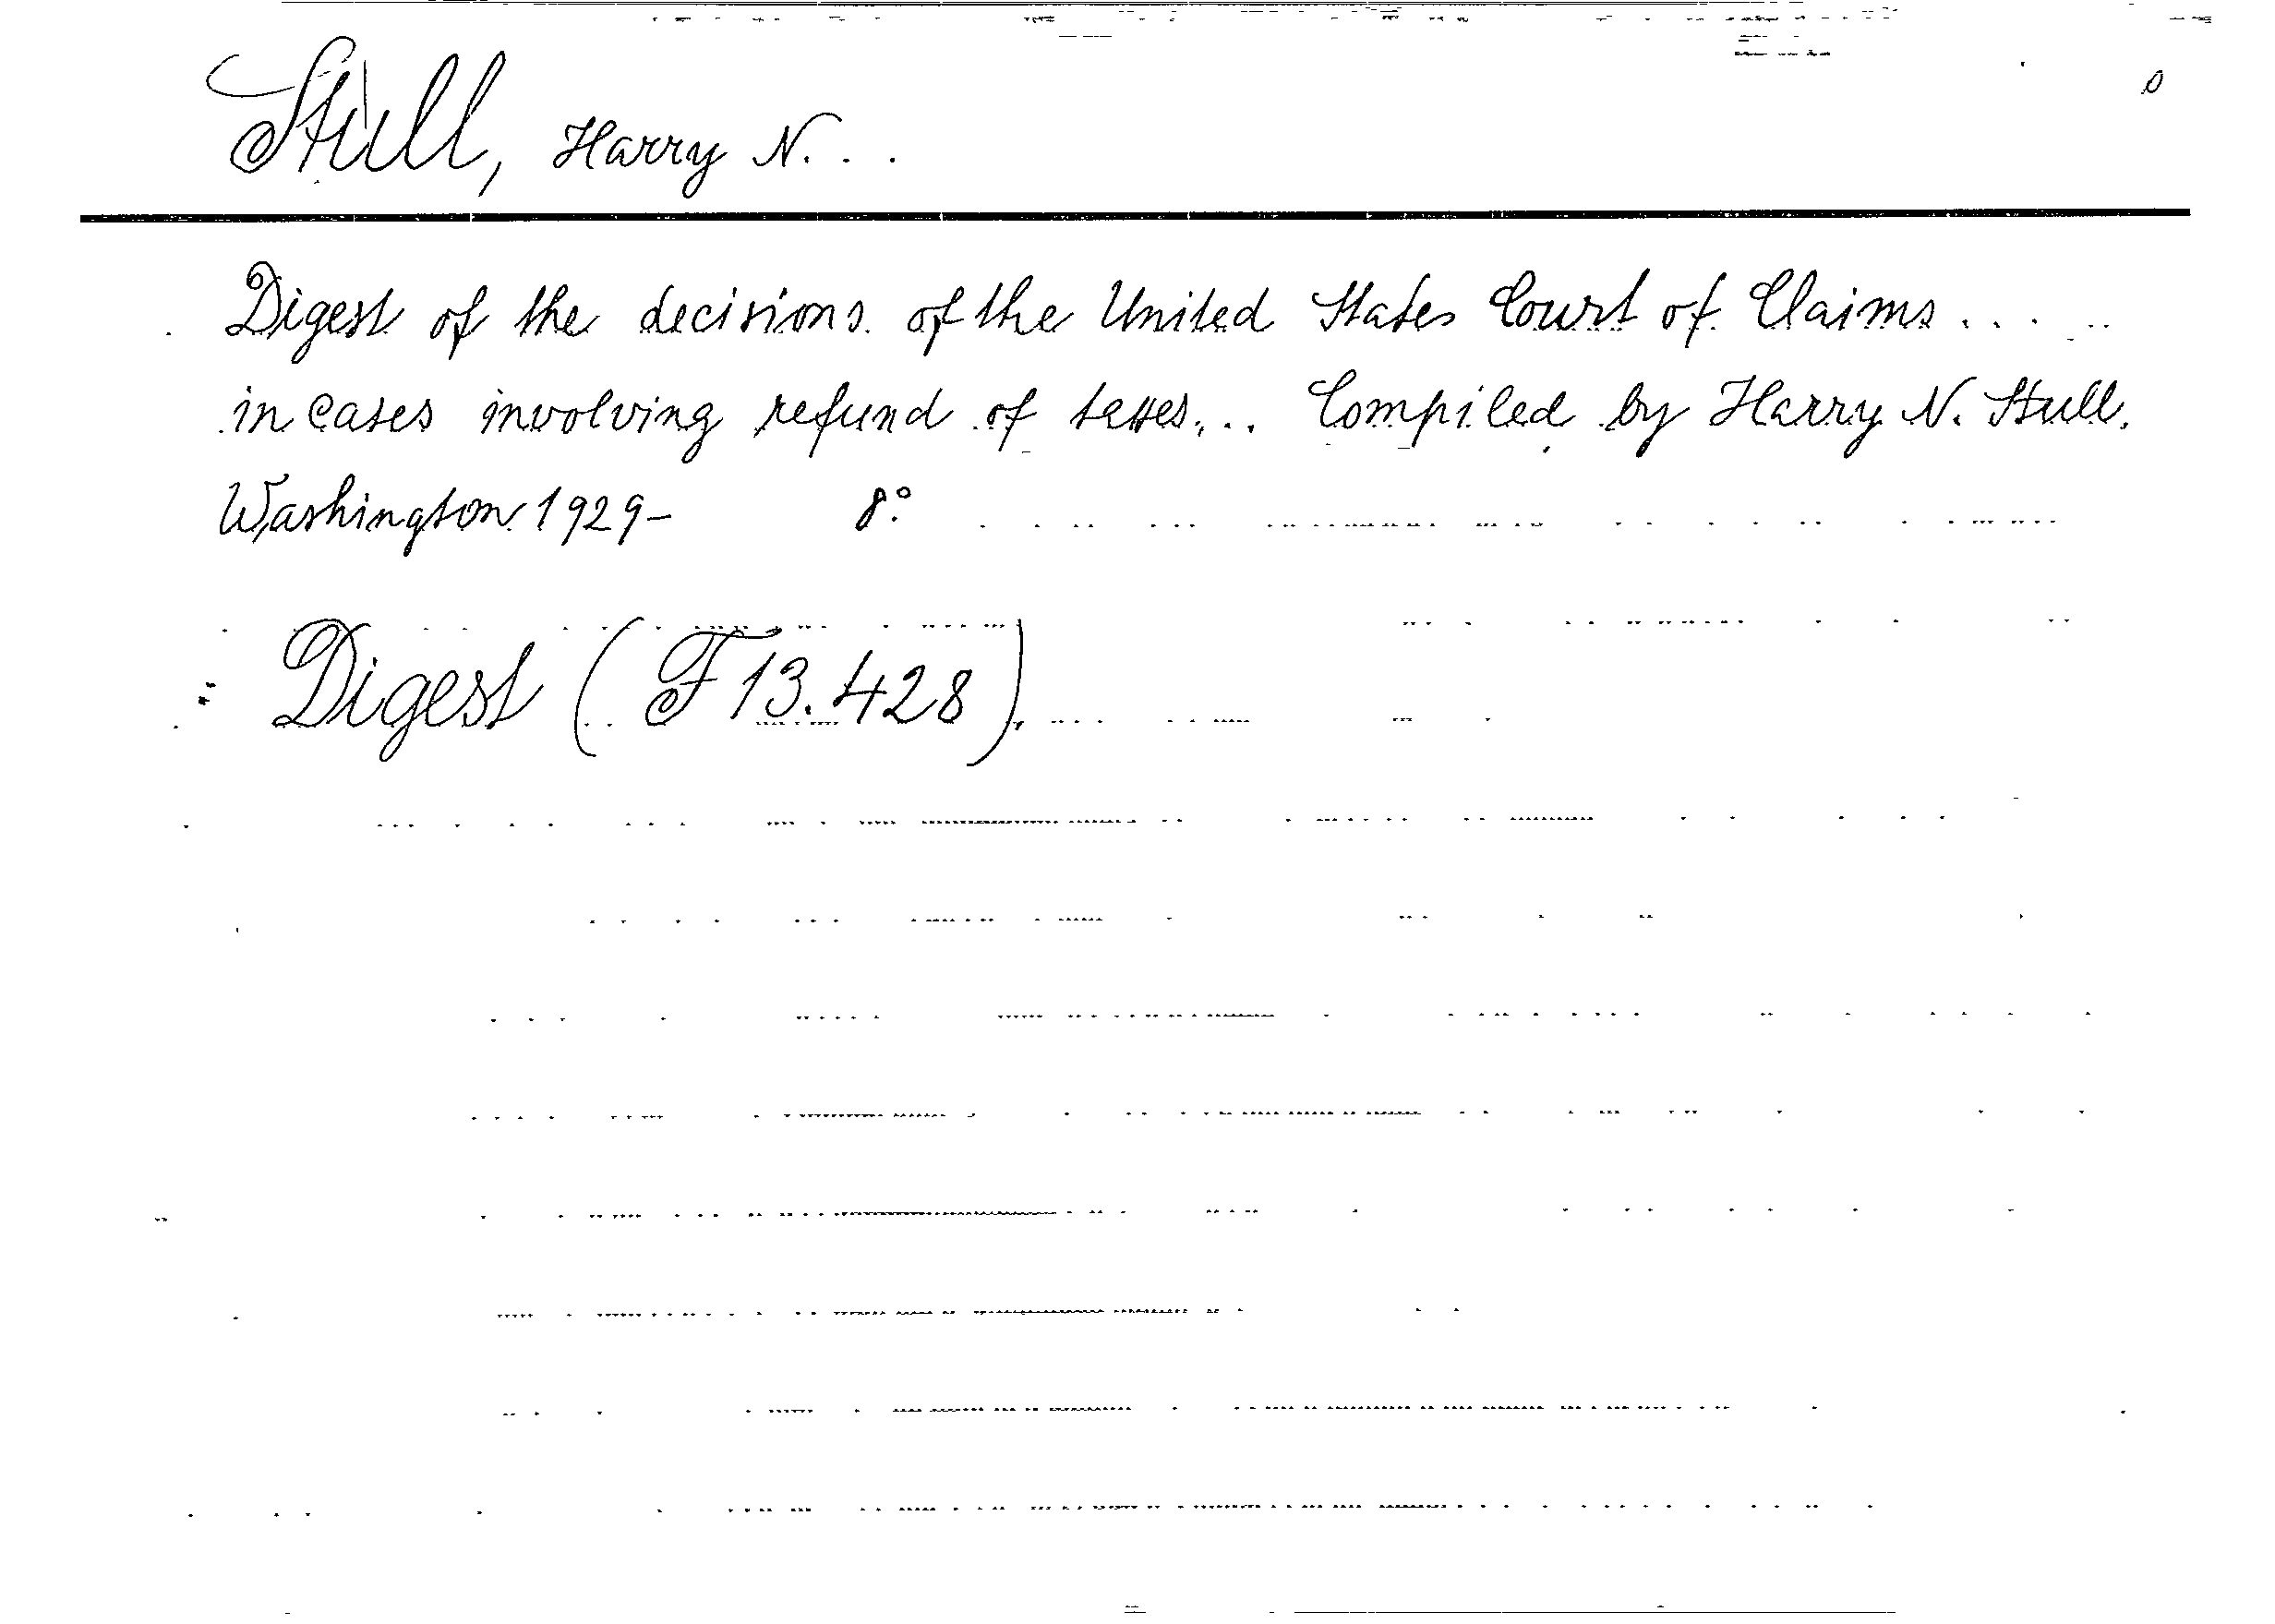 Stull, Harry N...
Digest of the decisions of the United States Court of Claims...
in cases involving refund of taxes... Compiled by Harry N. Stull.
Washington 1929- 8°.
Digest (F 13.428)